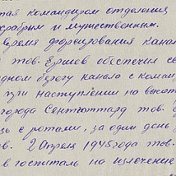 тая командиром отделения
храбрым и мужественным.
время форсирования канала
тов. Ершов обеспечил св
дном берегу канала с коман
при наступлении на высот
города Сентготтард тов.
зь с ротами, за один день
в. 2 Апреля 1945 года тов.
в госпиталь на излечение